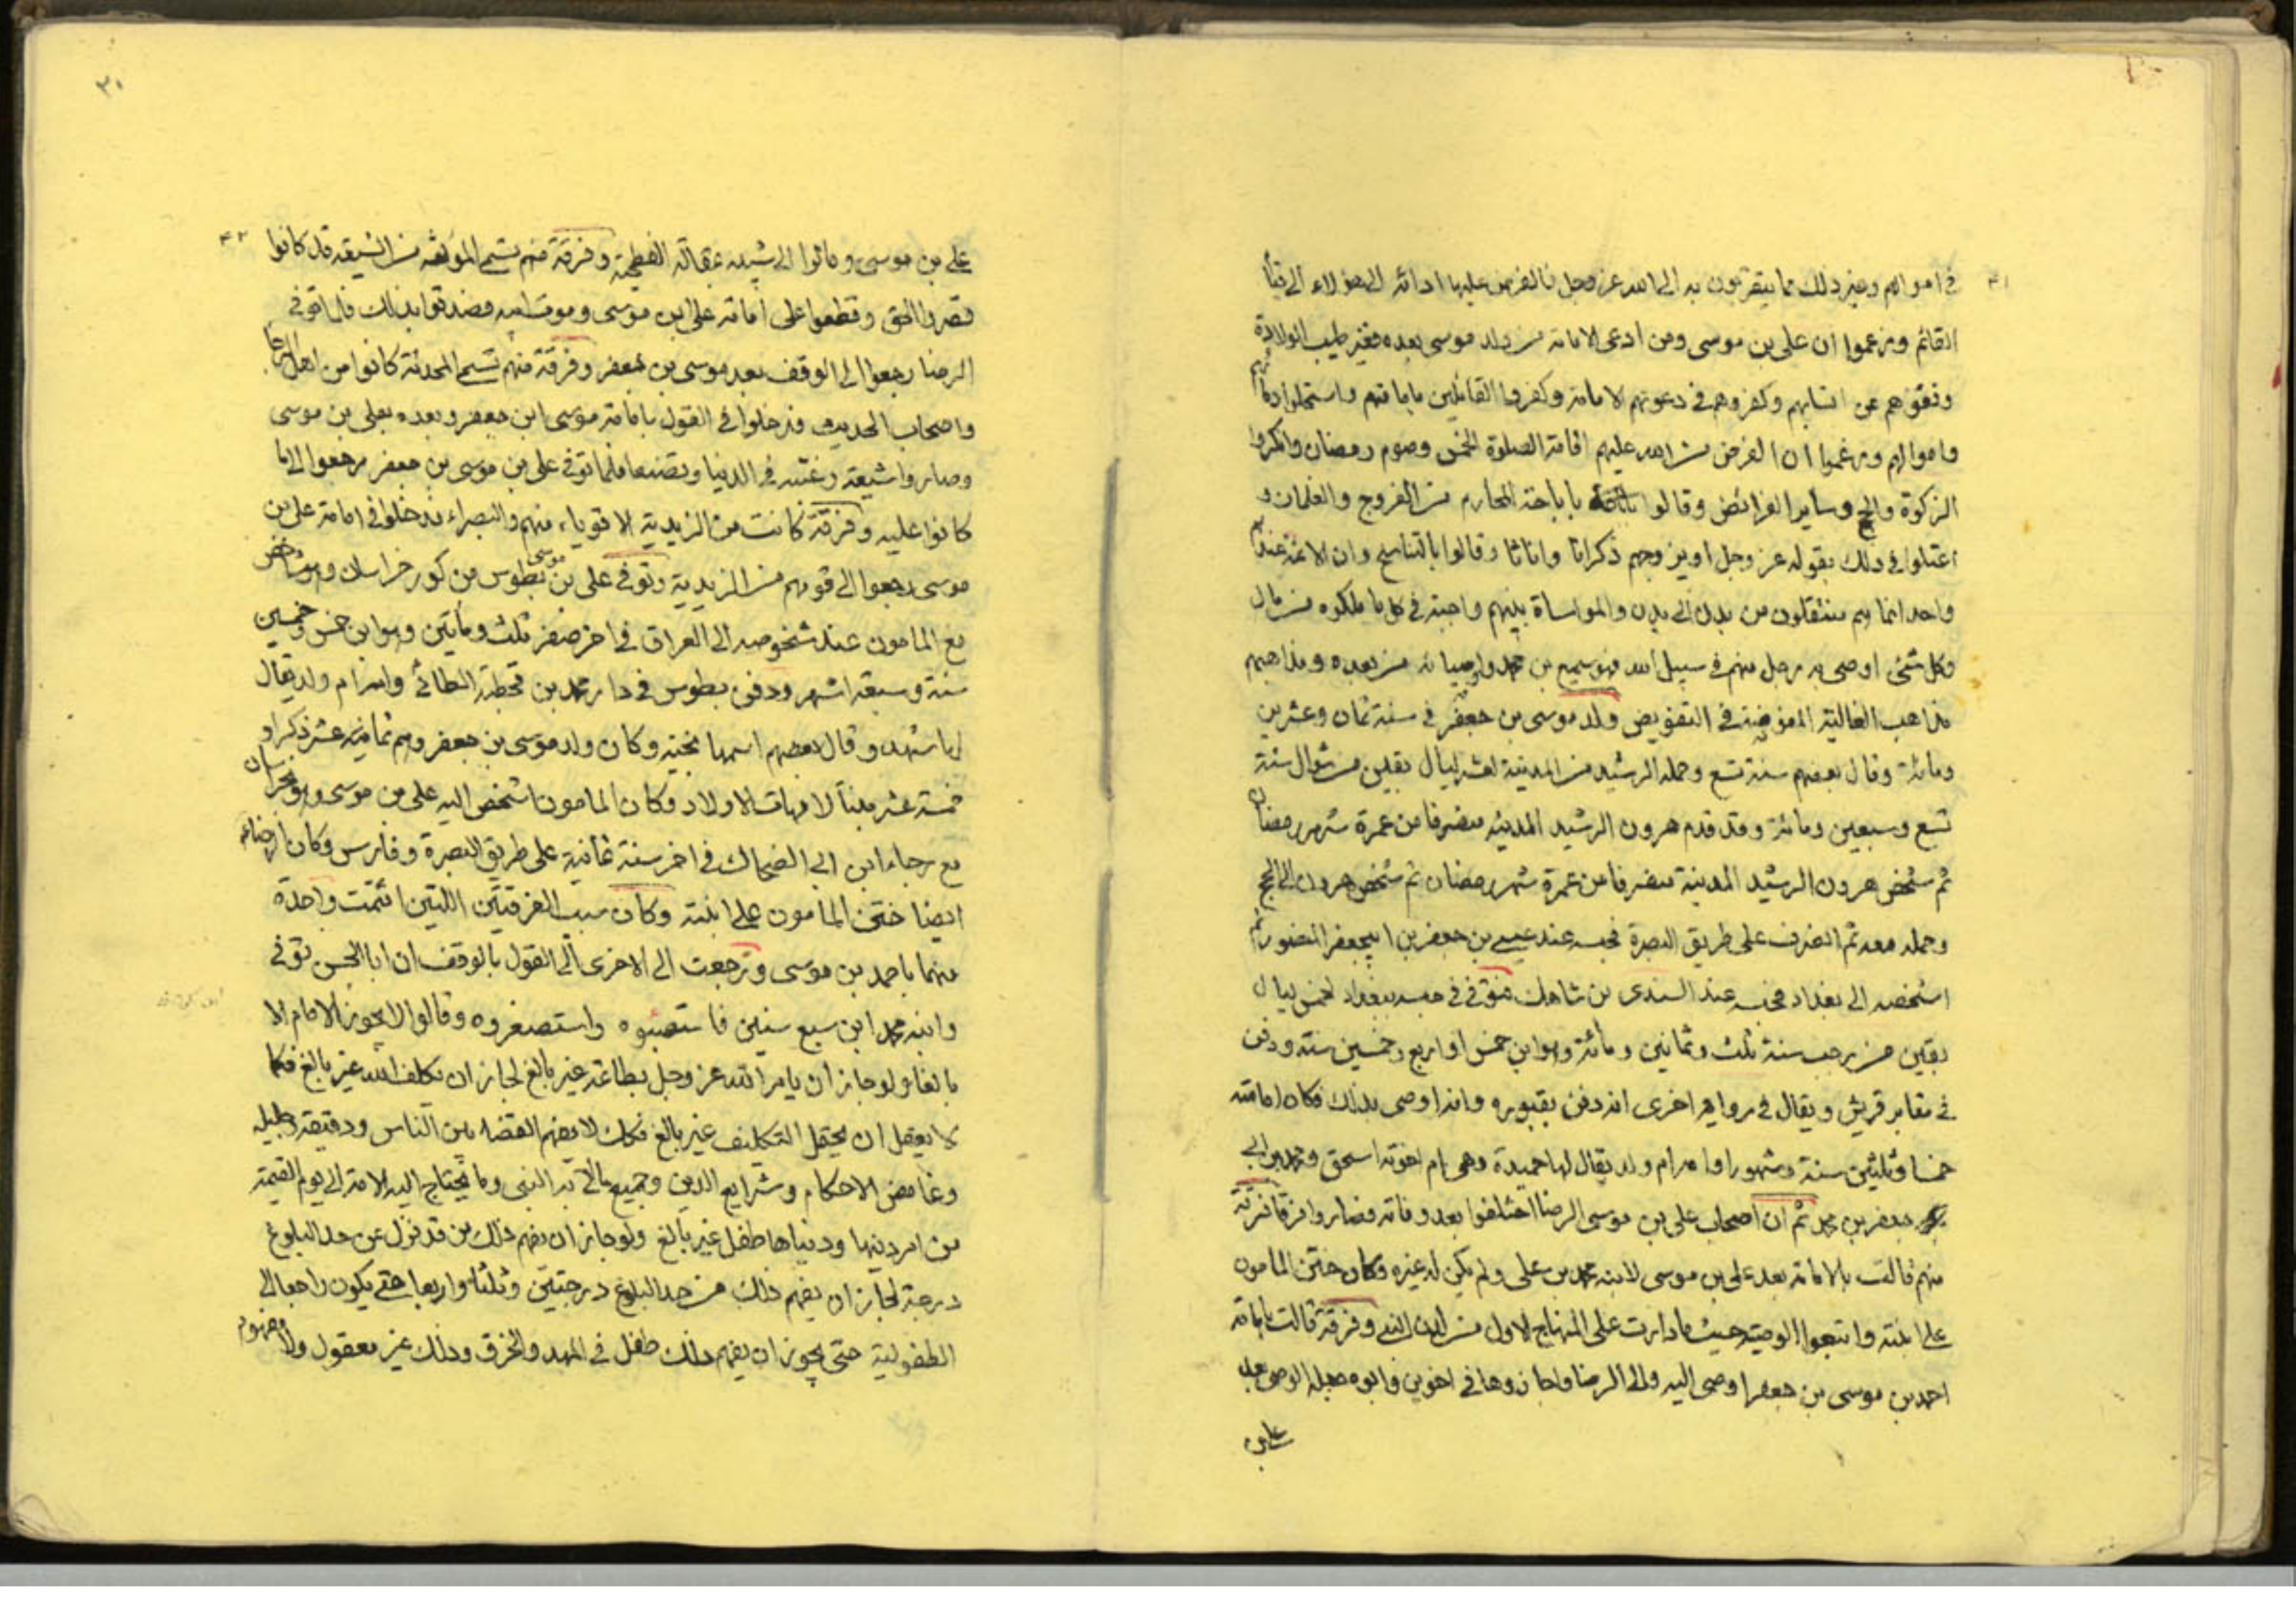 ٤١
في اموالهم وغير ذلك مما يتقربون به الى الله عز وجل فالفرض عليها ادائه الى هؤلاء الى
القائم وزعموا ان علي بن موسى ومن ادعى الامامة من ولد موسى بعده فغير طيب الولادة
ونفوهم عن انسابهم وكفروهم في دعويهم الامامة وكفروا القائلين بامامتهم واستحلوا دمائهم
واموالهم وزعموا ان الفرض من الله عليهم اقامة الصلوة الخمس وصوم رمضان وانكروا
الزكوة والحج وساير الفرائض وقالوا باباحة المحارم من الفروج والغلمان و
اعتلوا في ذلك بقوله عز وجل او يزوجهم ذكرانا واناثا وقالوا بالتناسخ وان الائمة عندهم
واحد انما هم منتقلون من بدن الى بدن والمواساة بينهم واجبة في كل ما ملكوه من مال
وكل شئ اوصى به رجل منهم في سبيل الله فهو لسميع بن محمد واوصيائه من بعده ومذاهبهم
مذاهب الغالية المفوضة في التفويض ولد موسى بن جعفر في سنة ثمان وعشرين
ومائة وقال بعضهم سنة تسع وحمله الرشيد من المدينة لعشر ليال بقين من شوال سنة
تسع وسبعين ومائة وقد قدم هرون الرشيد المدينة منصرفا من عمرة شهر رمضان
ثم شخص هرون الرشيد المدينة منصرفا من عمرة شهر رمضان ثم شخص هرون الى الحج
وحمله معه ثم انصرف على طريق البصرة فحبسه عند عيسى بن جعفر بن ابيجعفر المنصور ثم
اشخصه الى بغداد فحبسه عند السندى بن شاهك فتوفى في حبسه ببغداد لخمس ليال
بقين من رجب سنة ثلث وثمانين ومائة وهو ابن خمس او اربع وخمسين سنة ودفن
في مقابر قريش ويقال في رواية اخرى انه دفن بقيوده وانه اوصى بذلك فكان امامته
خمسا وثلثين سنة وشهورا وامه ام ولد يقال لها حميدة وهى ام اخوته اسحق ومحمد ابنى
جعفر بن محمد ثم ان اصحاب علي بن موسى الرضا اختلفوا بعد وفاته فصاروا فرقا فرقة
منهم قالت بالامامة بعد علي بن موسى لابنه محمد بن علي ولم يكن له غيره وكان ختن المامون
على ابنته واتبعوا الوصية حيث ما دارت على المنهاج الاول من لدن النبي وفرقة قالت بامامة
احمد بن موسى بن جعفر اوصى اليه والى الرضا واجازوها في اخوين وابوه جعله الوصى بعد
علي بن
٣٠
٤٢
علي بن موسى ومالوا الى شبيه بمقالة الفطحية وفرقة منهم تسمى المؤلفة من الشيعة قد كانوا
نصروا الحق وقطعوا على امامة علي ابن موسى وموت ابيه فصدقوا بذلك فلما توفى
الرضا رجعوا الى الوقف بعد موسى بن جعفر وفرقة منهم تسمى المحدثة كانوا من اهل الارجا
واصحاب الحديث فدخلوا في القول بامامة موسى ابن جعفر وبعده بعلي بن موسى
وصاروا شيعة رغبة في الدنيا وتصنعا فلما توفى علي بن موسى بن جعفر رجعوا الى ما
كانوا عليه وفرقة كانت من الزيدية الاقوياء منهم والبصراء فدخلوا في امامة علي بن
موسى رجعوا الى قومهم من الزيدية وتوفى علي بن موسى بطوس من كور خراسان وهو شاخص
مع المامون عند شخوصه الى العراق في اخر صفر ثلث ومأتين وهو ابن خمس وخمسين
سنة وسبعة اشهر ودفن بطوس في دار محمد بن قحطبة الطائى وامه ام ولد يقال
لها شهد وقال بعضهم اسمها نجية وكان ولد موسى بن جعفر وهم ثمانية عشر ذكرا و
خمسة عشر بنتا لامهات الاولاد وكان المامون اشخص اليه علي بن موسى وهو بخراسان
مع رجاء ابن ابي الضحاك في اخر سنة ثمانية على طريق البصرة وفارس وكان الرضا
ايضا ختن المامون على ابنته وكان سبب الفرقتين اللتين ائتمت واحدة
منهما باحمد بن موسى ورجعت الاخرى الى القول بالوقف ان ابا الحسن توفى
وابنه محمد ابن سبع سنين فاستصبوه واستصغروه وقالوا لا يجوز الامام الا
بالغا ولو جاز ان يامر الله عز وجل بطاعة غير بالغ لجاز ان يكلف الله غير بالغ فكما
لا يعقل ان يحتمل التكليف غير بالغ فكذلك لا يفهم القضاء بين الناس ودقيقه وجليله
وغامض الاحكام وشرايع الدين وجميع ما اتى به النبي وما يحتاج اليه الامة الى يوم القيمة
من امر دينها ودنياها طفل غير بالغ ولو جاز ان يفهم ذلك من قد نزل عن حد البلوغ
درجة لجاز ان يفهم ذلك من حد البلوغ درجتين وثلثا واربعا حتى يكون راجعا الى
الطفولية حتى يجوز ان يفهم ذلك طفل في المهد والخرق وذلك غير معقول ولا مفهوم